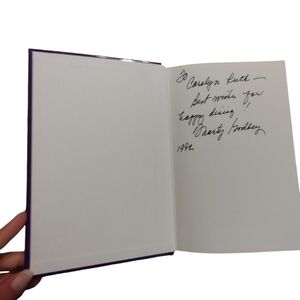 To
Carolyn Ruth —
Best wishes for
happy dining,
Marty Godbey
1992